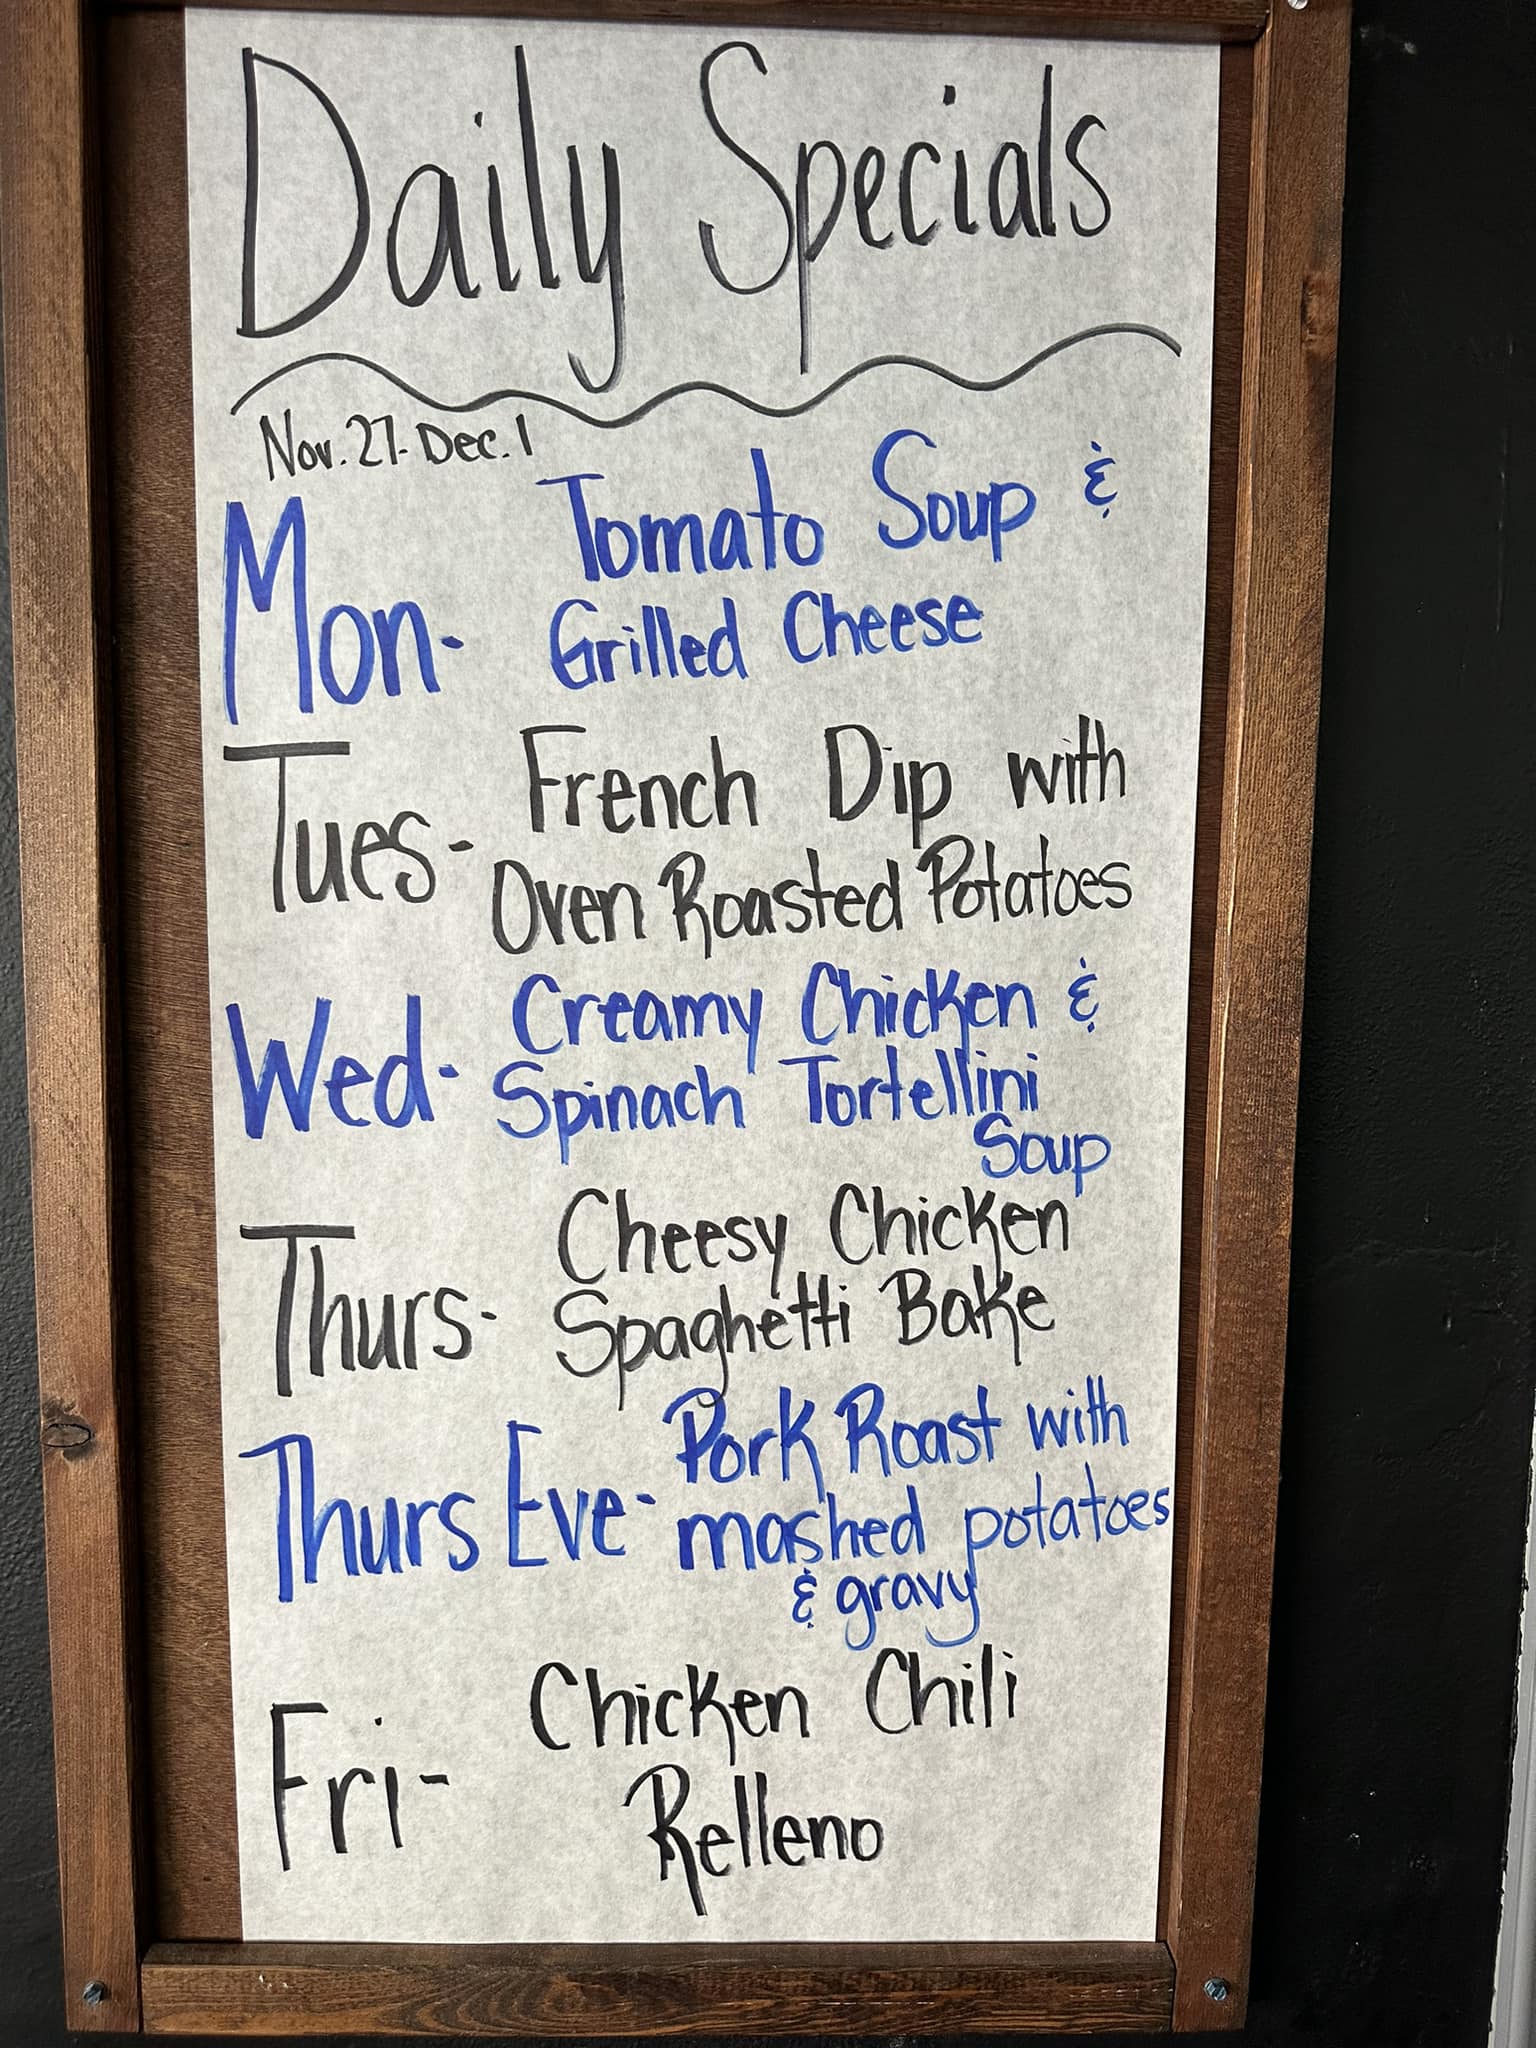 Daily Specials
Nov. 27- Dec. 1
Mon- Tomato Soup &
Grilled Cheese
Tues- French Dip with
Oven Roasted Potatoes
Wed- Creamy Chicken &
Spinach Tortellini
Soup
Thurs- Cheesy Chicken
Spaghetti Bake
Thurs Eve- Pork Roast with
mashed potatoes
& gravy
Fri- Chicken Chili
Relleno